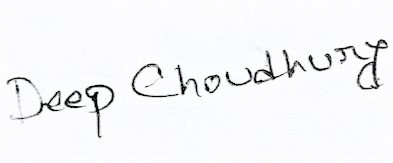 Deep Choudhury